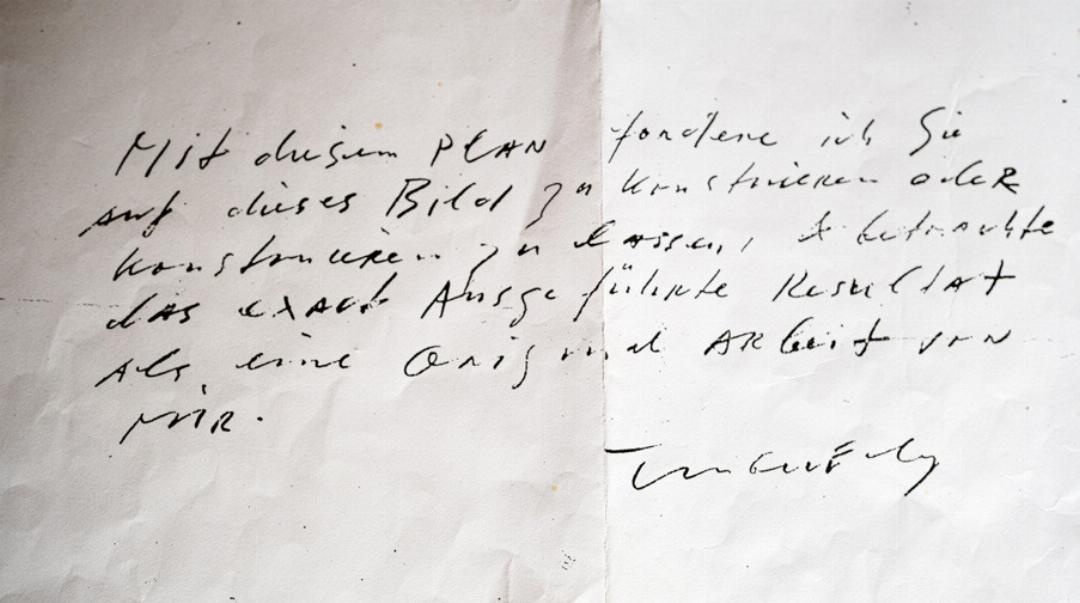 Mit diesem PLAN fordere ich Sie
auf dieses Bild zu konstruieren oder
konstruieren zu lassen, & betrachte
das exact Ausgeführte Resultat
als eine Original Arbeit von
MIR.
Tinguely